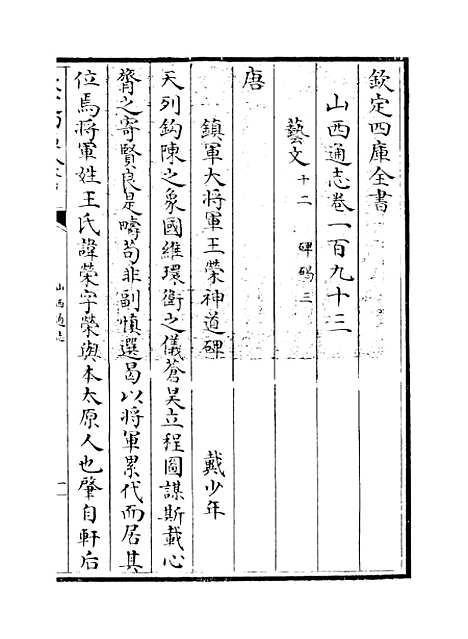 欽定四庫全書
山西通志卷一百九十三
藝文十二 碑碣三
唐
鎮軍大將軍王榮神道碑 戴少平
天列鈎陳之象國維環衛之儀蒼昊立程圖謀斯載心
膂之寄賢良是疇茍非副慎選曷以將軍累代而居其
位焉將軍姓王氏諱榮字榮輿本太原人也肇自軒后
山西通志